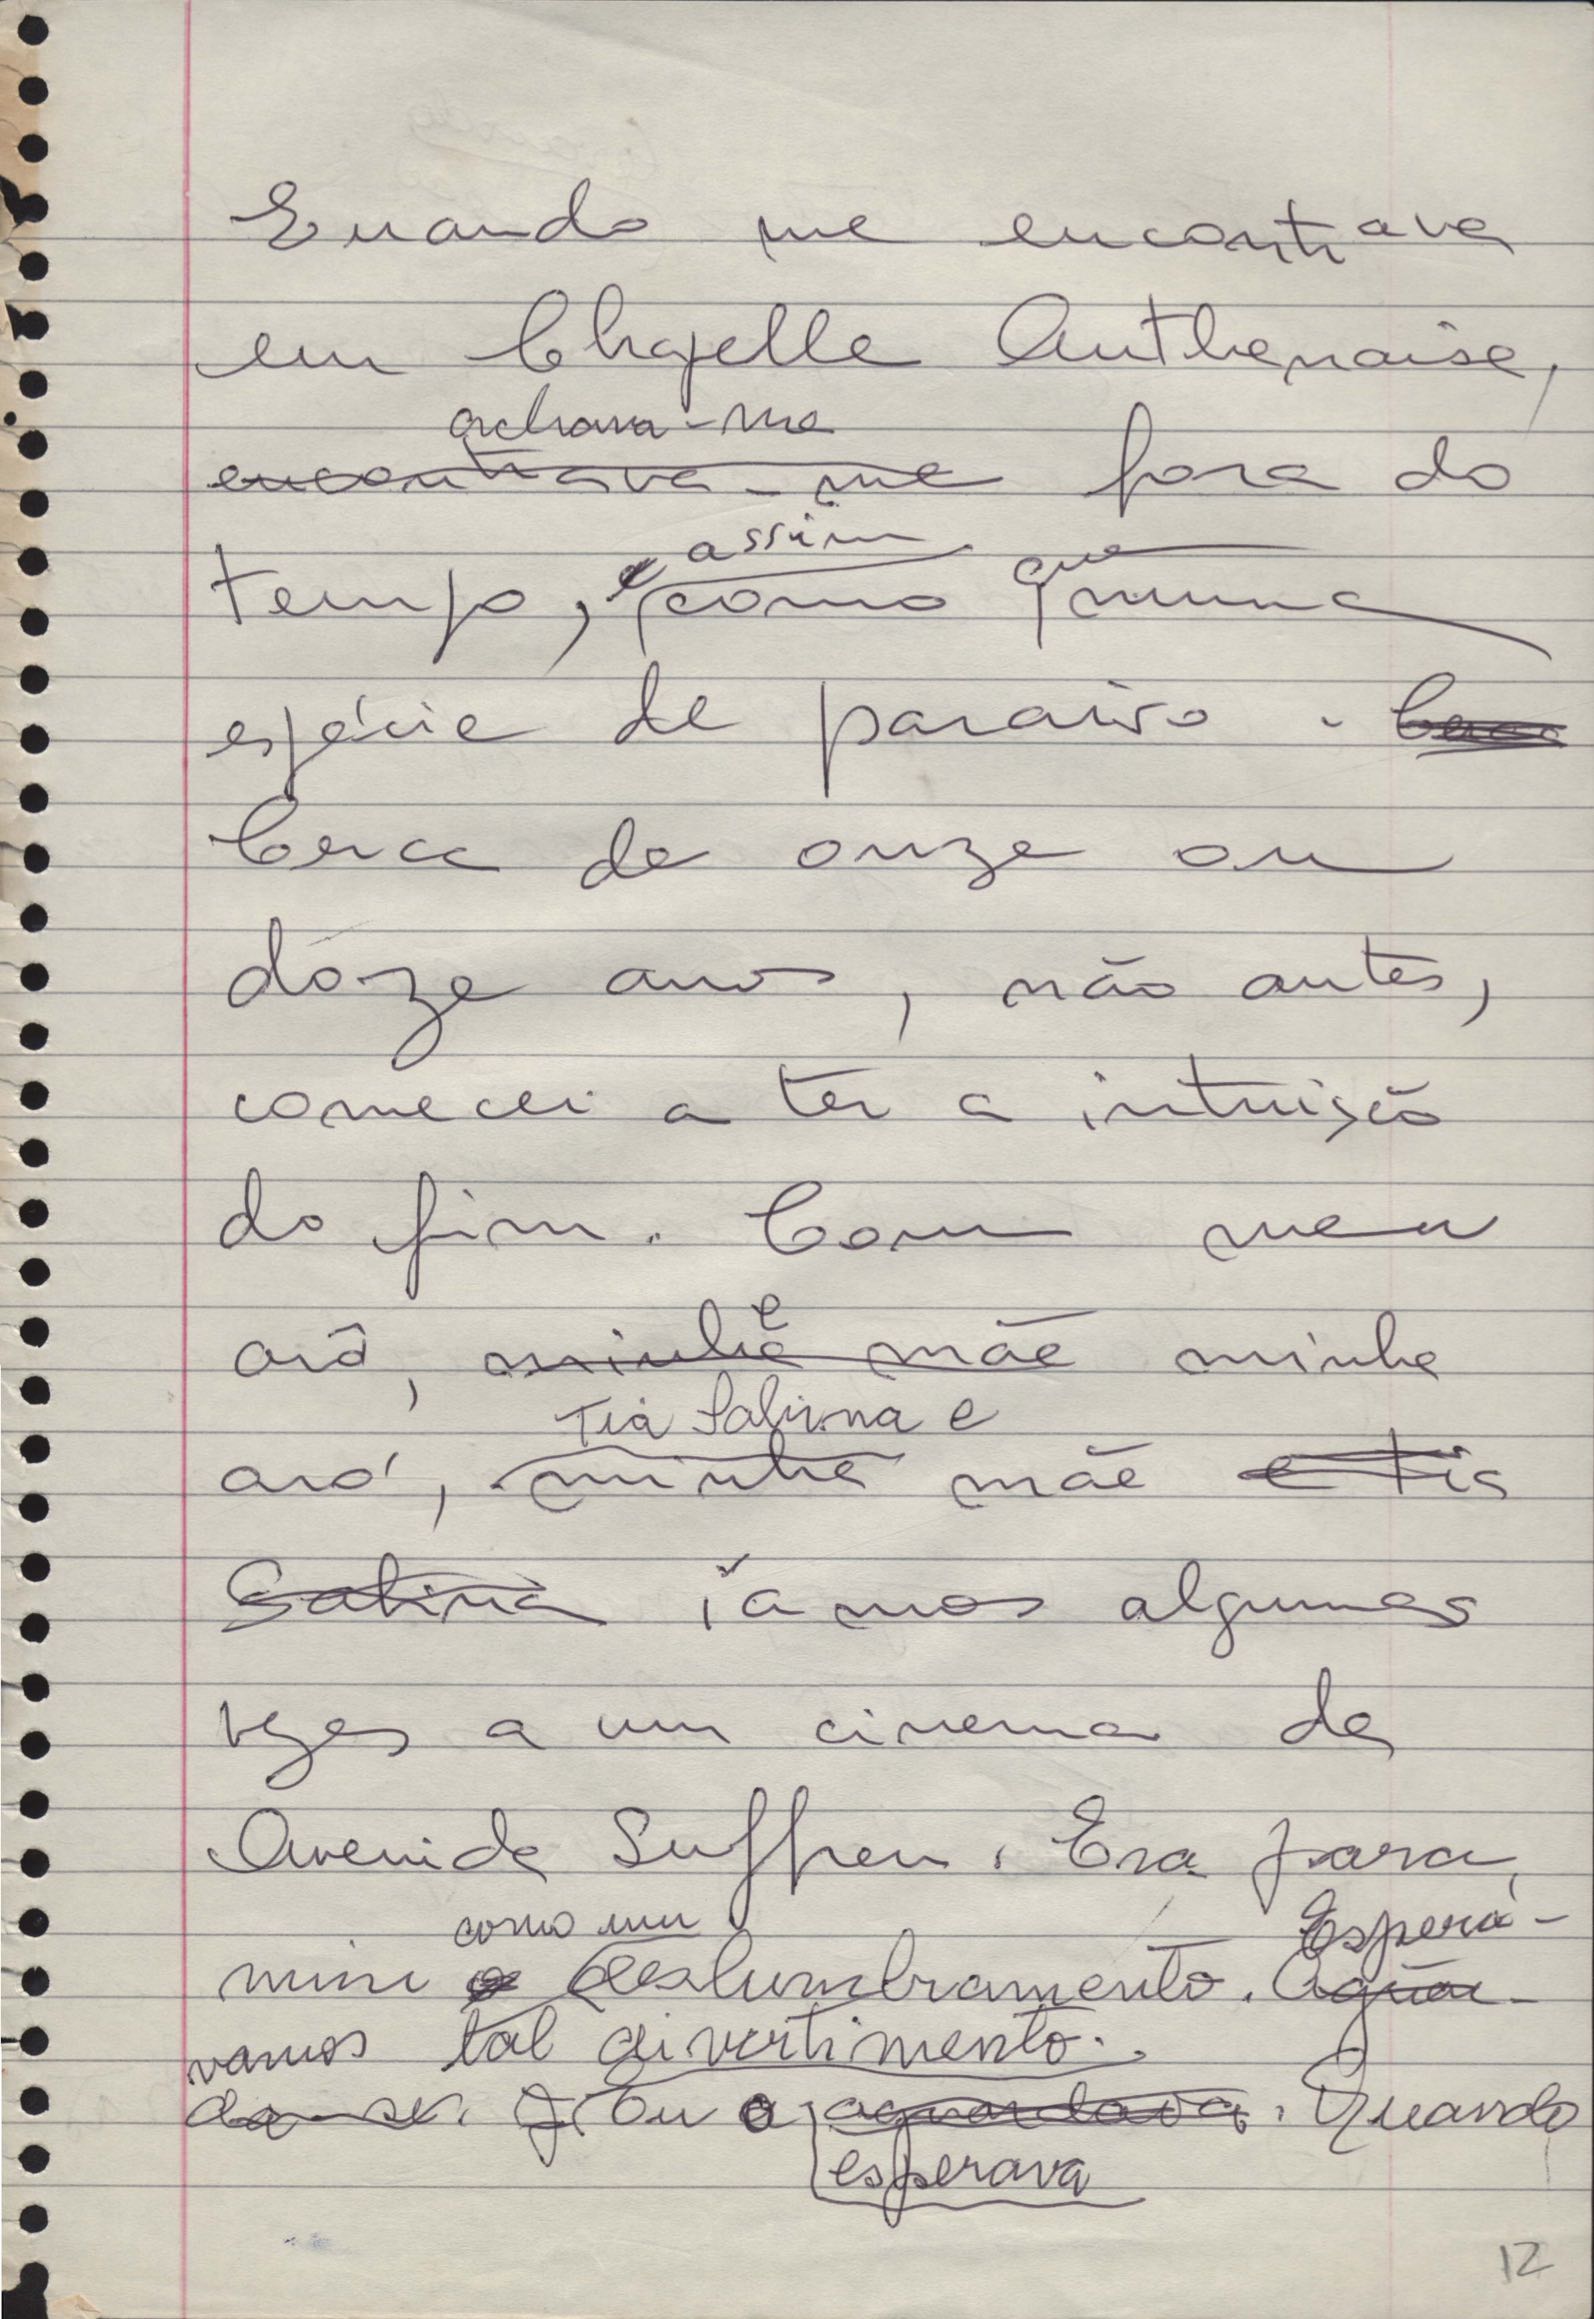 Quando me encontrava
em Chapelle Anthenaise,
achava-me
encontrava-me fora do
assim
tempo, e como que numa
espécie de paraíso.
Cerca de onze ou
doze anos, não antes,
comecei a ter a intuição
do fim. Com meu
e
avô, minha mãe minha
Tia Sabina e
avó, minha mãe e tia
Sabina íamos algumas
vezes a um cinema da
Avenida Suffren. Era para
como um Esperá-
mim o deslumbramento. Aguar-
vamos tal divertimento.
da-se. Eu o aguardava. Quando
esperava
12